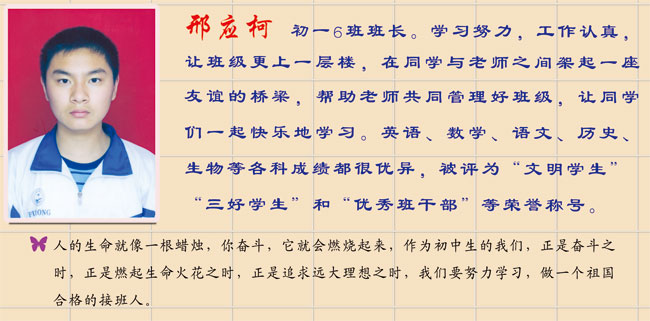 邢应柯 初一6班班长。学习努力，工作认真，
让班级更上一层楼，在同学与老师之间架起一座
友谊的桥梁，帮助老师共同管理好班级，让同学
们一起快乐地学习。英语、数学、语文、历史、
生物等各科成绩都很优异，被评为“文明学生”
“三好学生”和“优秀班干部”等荣誉称号。
人的生命就像一根蜡烛，你奋斗，它就会燃烧起来，作为初中生的我们，正是奋斗之
时，正是燃起生命火花之时，正是追求远大理想之时，我们要努力学习，做一个祖国
合格的接班人。